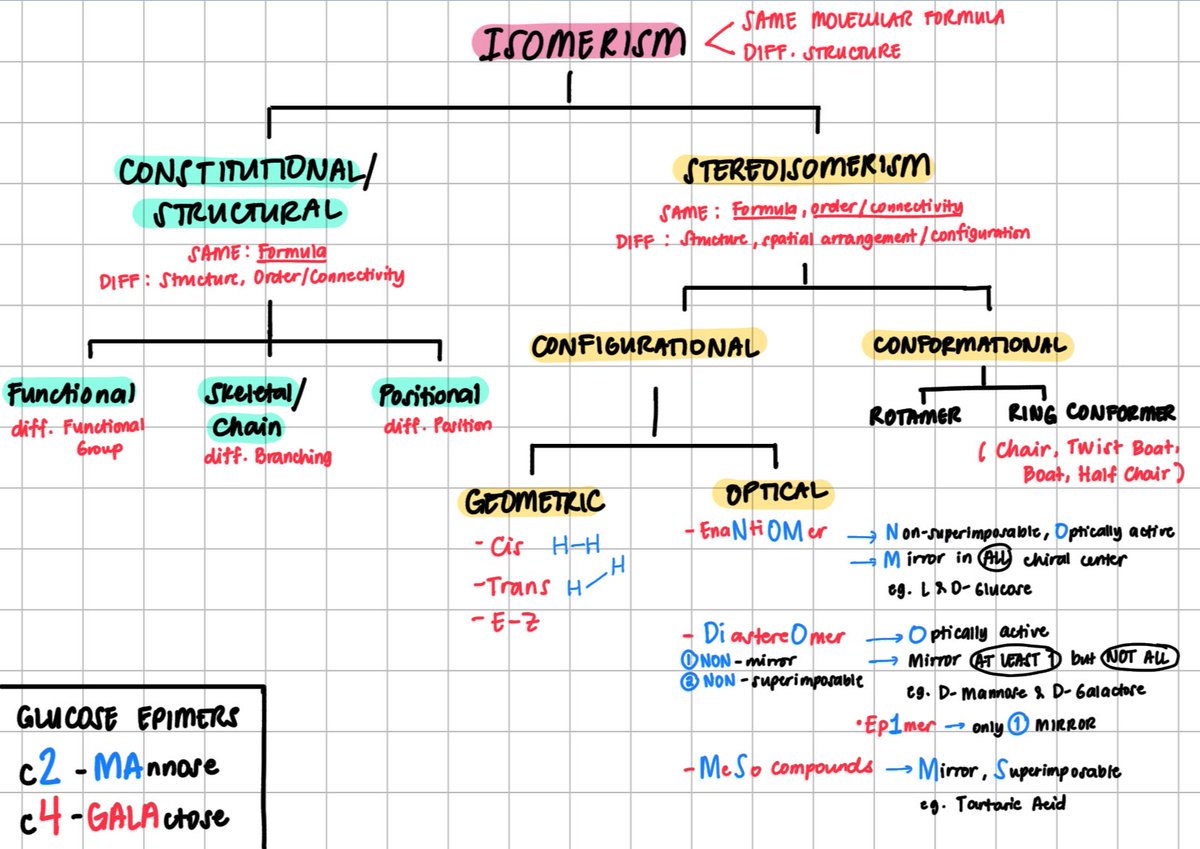 ISOMERISM
SAME MOLECULAR FORMULA
DIFF. STRUCTURE
CONSTITUTIONAL/
STRUCTURAL
SAME: Formula
DIFF: Structure, Order/Connectivity
STEREDISOMERISM
SAME: Formula, order/connectivity
DIFF: Structure, spatial arrangement/configuration
Functional
diff. Functional
Group
Skeletal/
Chain
diff. Branching
Positional
diff. Position
CONFIGURATIONAL
CONFORMATIONAL
ROTAMER
RING CONFORMER
(Chair, Twist Boat,
Boat, Half Chair)
GEOMETRIC
- Cis H-H
- Trans H H
- E-Z
OPTICAL
- EnaNtiOMer → Non-superimposable, Optically active
→ Mirror in ALL chiral center
eg. L & D- Glucose
- DiastereOmer → Optically active
① NON - mirror → Mirror AT LEAST 1 but NOT ALL
② NON - superimposable
eg. D- Mannose & D- Galactose
• Ep1mer → only ① MIRROR
- MeSo compounds → Mirror, Superimposable
eg. Tartaric Acid
GLUCOSE EPIMERS
c2 - MAnnose
c4 - GALActose